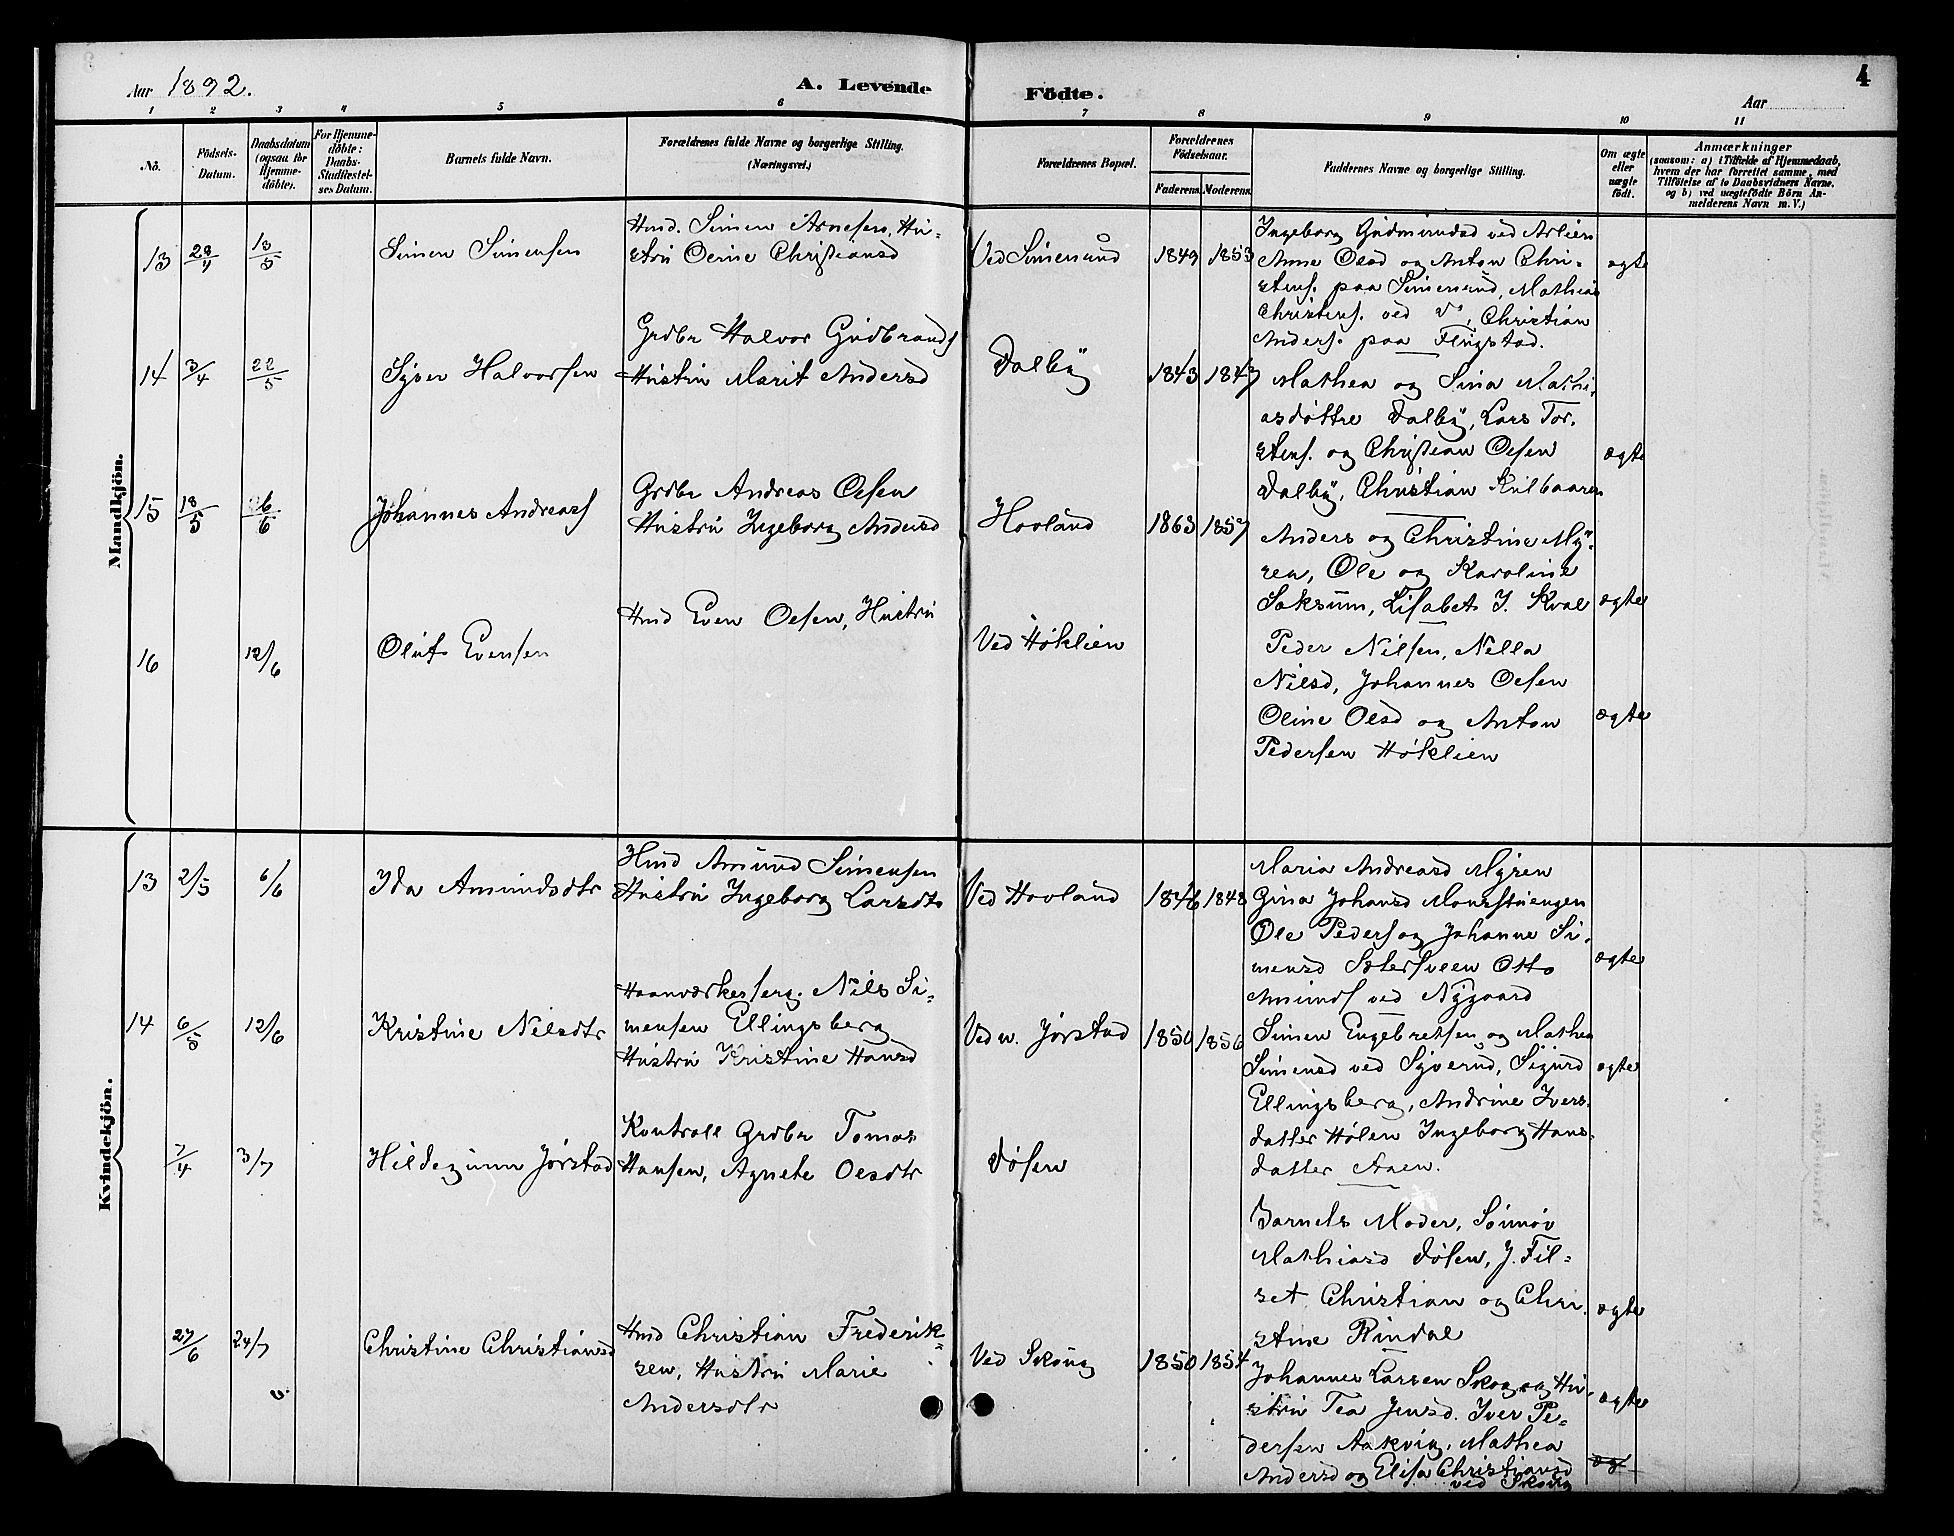 Aar 1892.
A. Levende
Födte.
Aar
4
1 2 3 4 5 6 7 8 9 10 11
No.
Födsels-
Datum.
Daabsdatum
(ogsaa for
Hjemme-
döbte).
For Hjemme-
döbte:
Daabs-
Stadfæstel-
ses Datum.
Barnets fulde Navn.
Forældrenes fulde Navne og borgerlige Stilling.
(Næringsvei.)
Forældrenes Bopæl.
Forældrenes
Födselsaar.
Faderens. Moderens.
Faddernes Navne og borgerlige Stilling.
Om ægte
eller
uægte
födt.
Anmærkninger
(saasom: a) i Tilfælde af Hjemmedaab,
hvem der har forrettet samme, med
Tilföielse af to Daabsvidners Navne.
og b) ved uægtefödte Börn An-
melderens Navn m. V.)
Mandkjön.
13 28/4 13/5 Simen Simensen
Hmd. Simen Arnesen, Hu-
stru Oline Christiansd
Ved Simensund 1849 1853
Ingeborg Gudmundsd ved Arlien
Anne Olsd og Anton Chri-
stens. paa Simensund, Mathias
Christens. ved do, Christian
Anders. paa Flingstad.
ægte
14 3/4 22/5 Syver Halvorsen
Grdbr Halvor Gudbrands
Hustru Marit Andersd
Dalby 1843 1847
Mathea og Sina Mathi-
asdøttre Dalby, Lars Tor-
stens. og Christian Olsen
Dalby, Christian Kulbaaren
ægte
15 18/5 26/6 Johannes Andreass
Grdbr Andreas Olsen
Hustru Ingeborg Andersd
Hovland 1863 1857
Anders og Christine My-
ren, Ole og Karoline
Saksum, Lisabet J. Kval
ægte
16 12/6 Oluf Evensen
Hmd Even Olsen, Hustru
Ved Høklien
Peder Nilsen, Nilla
Nilsd, Johannes Olsen
Oline Olsd og Anton
Pedersen Høklien
ægte
Kvindekjön.
13 2/5 6/6 Ida Amundsdtr
Hmd Amund Simensen
Hustru Ingeborg Larsdtr
Ved Hovland 1846 1848
Maria Andreasd Myren
Gina Johansd Monsstuengen
Ole Peders og Johanne Si-
mensd Sætersveen Otto
Amunds ved Nygaard
ægte
14 6/5 12/6 Kristine Nilsdtr
Haanværkersserg. Nils Si-
mensen Ellingsberg
Hustru Kristine Hansd
Ved n. Jørstad 1850 1856
Simen Engebretsen og Mathea
Simensd ved Syverud, Sigurd
Ellingsberg, Andrine Ivers-
datter Hølen Ingeborg Hans-
datter Aaen.
ægte
7/4 3/7 Hildegunn Jørstad
Kontroll Grdbr Tomas
Hansen, Agnete Olsdtr
Døsen
Barnets Moder, Sønnøv
Mathiasd Døsen, J. Fil-
set Christian og Chri-
stine Rindal
ægte
27/6 24/7 Christine Christiansd
Hmd Christian Frederik-
sen, Hustru Marie
Andersdtr
Ved Skoug 1850 1854
Johannes Larsen Skoug og Hu-
stru Tea Jensd. Iver Pe-
dersen Aakvig, Mathea
Andersd og Elisa Christiansd
ved Skoug
ægte